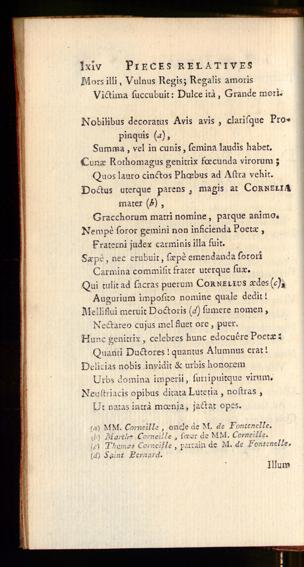 lxiv PIECES RELATIVES
Mors illi, Vulnus Regis; Regalis amoris
Victima succubuit: Dulce ità, Grande mori.
Nobilibus decoratus Avis avis, clarisque Pro-
pinquis (a),
Summa, vel in cunis, semina laudis habet.
Cunæ Rothomagus genitrix fœcunda virorum;
Quos lauro cinctos Phœbus ad Astra vehit.
Doctus uterque parens, magis at CORNELIA
mater (b),
Gracchorum matri nomine, parque animo.
Nempè soror gemini non inficienda Poetæ,
Fraterni judex carminis illa fuit.
Sæpè, nec erubuit, sæpè emendanda sorori
Carmina commisit frater uterque sua.
Qui tulit ad sacras puerum CORNELIUS ædes (c),
Augurium imposito nomine quale dedit!
Melliflui meruit Doctoris (d) sumere nomen,
Nectareo cujus mel flueret ore, puer.
Hunc genitrix, celebres hunc edocuêre Poetæ:
Quanti Ductores! quantus Alumnus erat!
Delicias nobis invidit & urbis honorem
Urbs domina imperii, surripuitque virum.
Neustriacis opibus ditata Lutetia, nostras,
Ut natas intrà mœnia, jactat opes.
(a) MM. Corneille, oncles de M. de Fontenelle.
(b) Marthe Corneille, sœur de MM. Corneille.
(c) Thomas Corneille, parrain de M. de Fontenelle.
(d) Saint Bernard.
Illum